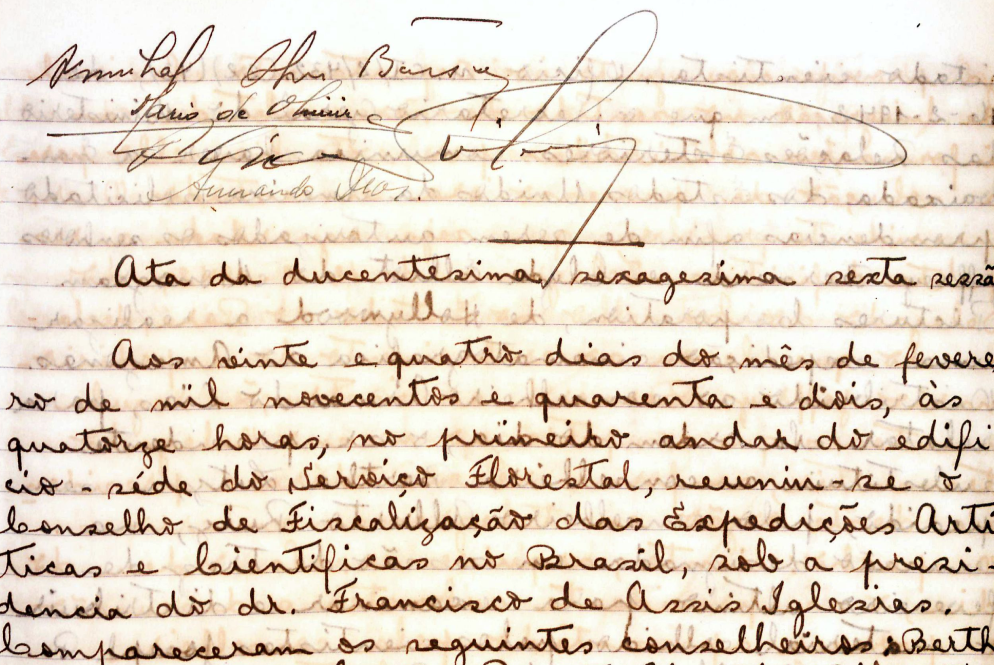 Mario de Oliveira
Armando
Ata da ducentesima sexagezima sexta sessã
Aos vinte e quatro dias do mês de fevere
ro de mil novecentos e quarenta e dois, às
quatorze horas, no primeiro andar do edifi
cio-séde do Serviço Florestal, reuniu-se o
Conselho de Fiscalização das Expedições Artí
ticas e Cientificas no Brasil, sob a presi-
dencia do dr. Francisco de Assis Iglesias.
Compareceram os seguintes conselheiros: Berth